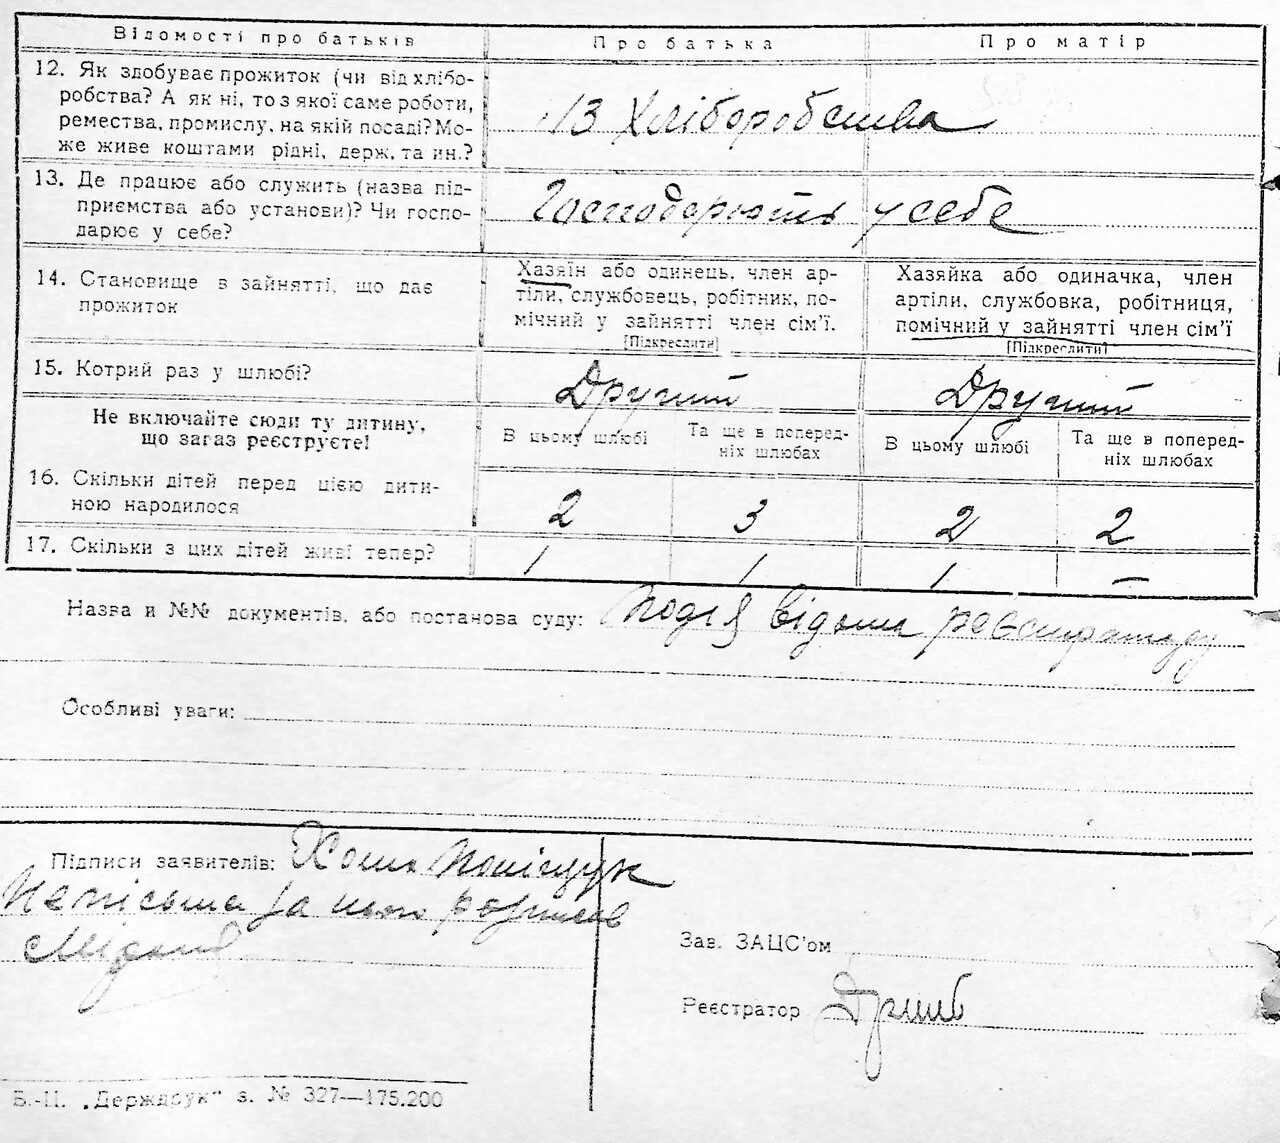 Відомості про батьків
Про батька
Про матір
12. Як здобуває прожиток (чи від хлібо-
робства? А як ні, то з якої саме роботи,
ремества, промислу, на якій посаді? Мо-
же живе коштами рідні, держ. та ин.?
Із Хліборобства
13. Де працює або служить (назва під-
приємства або установи)? Чи госпо-
дарює у себе?
Господарюють у себе
14. Становище в зайнятті, що дає
прожиток
Хазяїн або одинець, член ар-
тіли, службовець, робітник, по-
мічний у зайнятті член сім'ї.
[Підкреслити]
Хазяйка або одиначка, член
артіли, службовка, робітниця,
помічний у зайнятті член сім'ї
[Підкреслити]
15. Котрий раз у шлюбі?
Другий
Другий
Не включайте сюди ту дитину,
що загаз реєструєте!
В цьому шлюбі
Та ще в поперед-
ніх шлюбах
В цьому шлюбі
Та ще в поперед-
ніх шлюбах
16. Скільки дітей перед цією дити-
ною народилося
2
3
2
2
17. Скільки з цих дітей живі тепер?
1
1
1
—
Назва и №№ документів, або постанова суду: Подія відома реєстратуру
Особливі уваги:
Підписи заявителів: Хома
за
Зав. ЗАЦС'ом
Реєстратор
Б.-Ц. „Держдрук" з. № 327—175.200